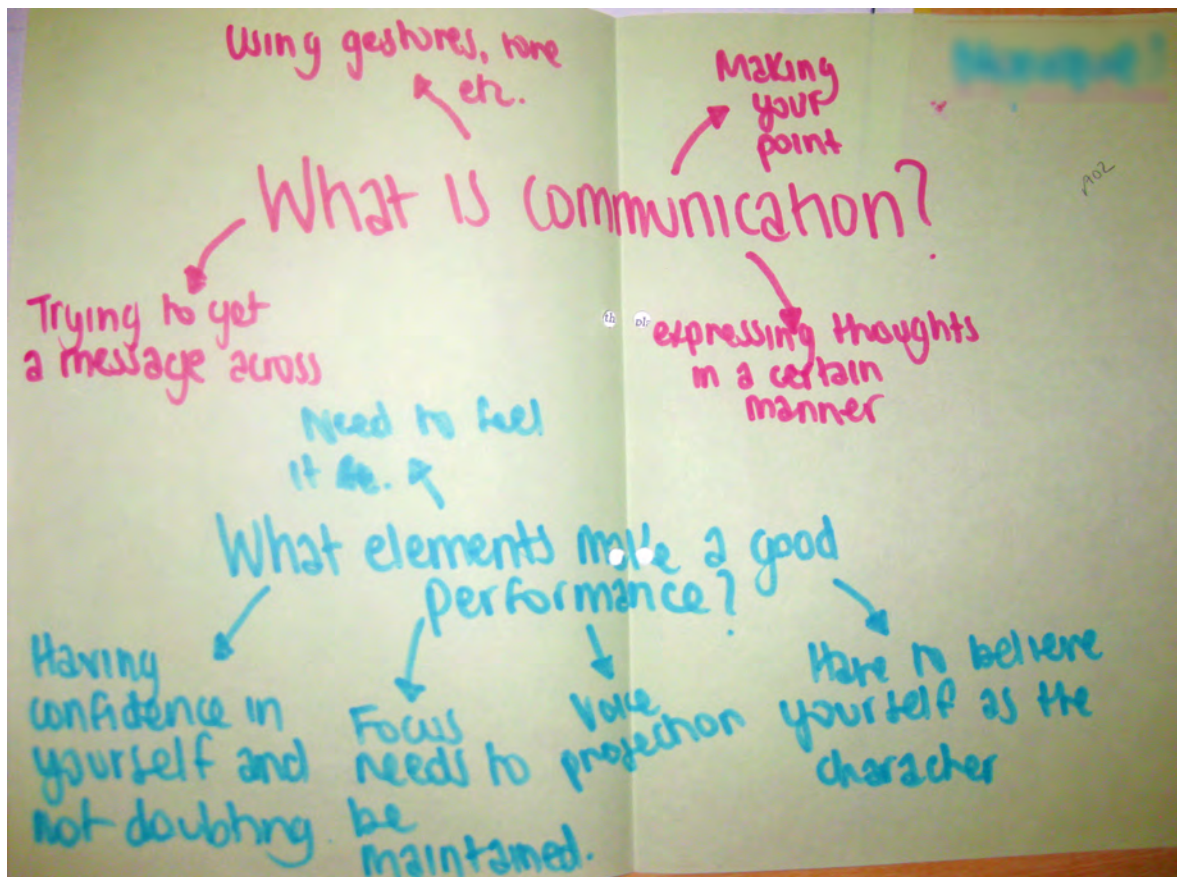 Using gestures, tone
etc.
Making
your
point
AO2
What is communication?
Trying to get
a message across
expressing thoughts
in a certain
manner
Need to feel
it
What elements make a good
performance?
Having
confidence in
yourself and
not doubting.
Focus
needs to
be
maintained.
Voice
projection
Have to believe
yourself as the
character